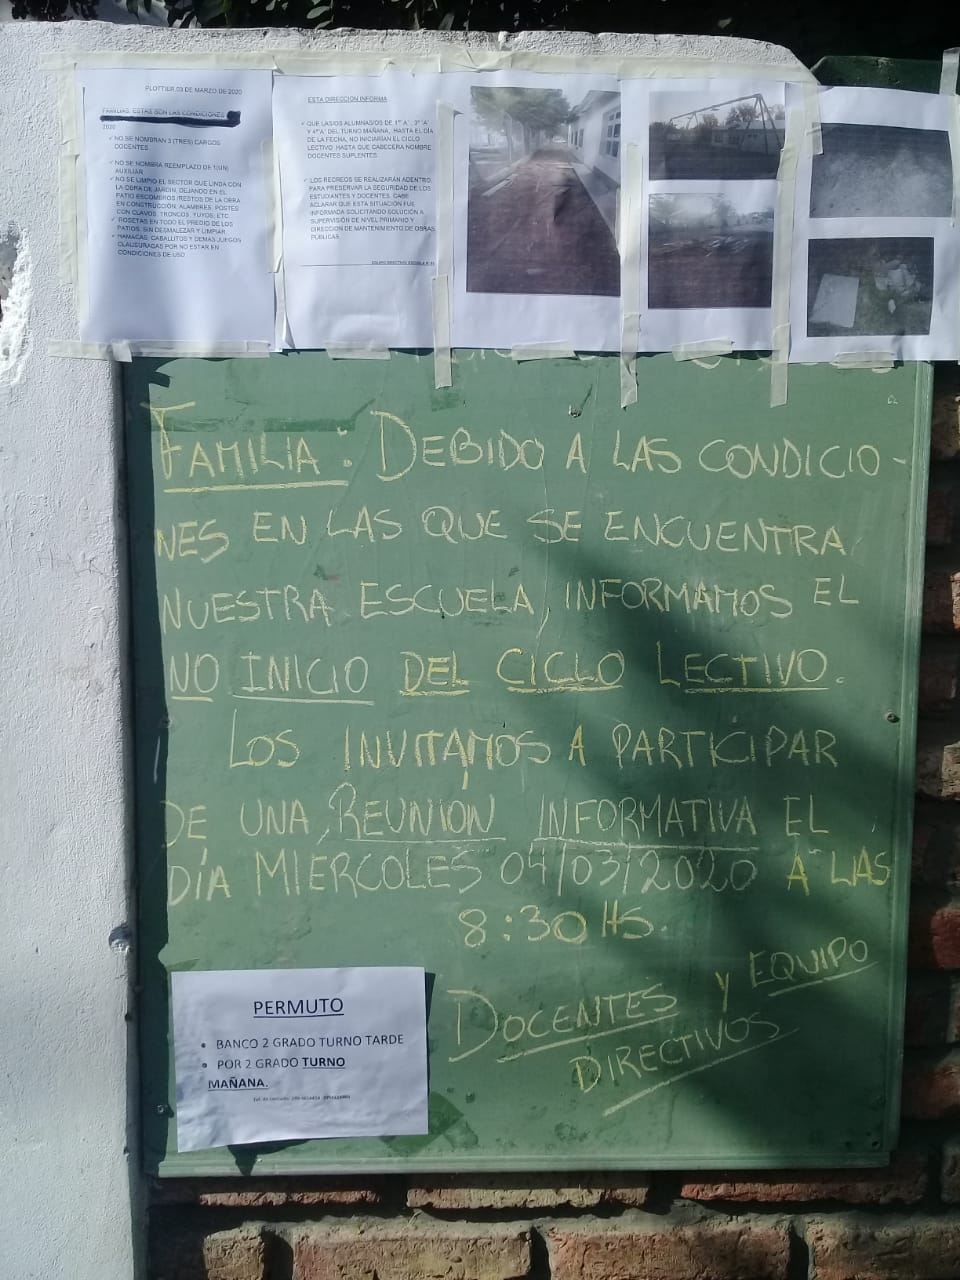 PLOTTIER, 03 DE MARZO DE 2020
FAMILIAS: ESTAS SON LAS CONDICIONES
2020
✓ NO SE NOMBRAN 3 (TRES) CARGOS
DOCENTES
✓ NO SE NOMBRA REEMPLAZO DE 1(UN)
AUXILIAR
✓ NO SE LIMPIO EL SECTOR QUE LINDA CON
LA OBRA DE JARDIN, DEJANDO EN EL
PATIO ESCOMBROS /RESTOS DE LA OBRA
EN CONSTRUCCIÓN, ALAMBRES, POSTES
CON CLAVOS, TRONCOS, YUYOS, ETC
✓ ROSETAS EN TODO EL PREDIO DE LOS
PATIOS, SIN DESMALEZAR Y LIMPIAR.
✓ HAMACAS, CABALLITOS Y DEMAS JUEGOS
CLAUSURADAS POR NO ESTAR EN
CONDICIONES DE USO
ESTA DIRECCION INFORMA
✓ QUE LAS/OS ALUMNAS/OS DE 1° "A", 3° "A"
Y 4°"A" DEL TURNO MAÑANA, HASTA EL DÍA
DE LA FECHA, NO INICIARÍAN EL CICLO
LECTIVO HASTA QUE CABECERA NOMBRE
DOCENTES SUPLENTES.
✓ LOS RECREOS SE REALIZARÁN ADENTRO,
PARA PRESERVAR LA SEGURIDAD DE LOS
ESTUDIANTES Y DOCENTES. CABE
ACLARAR QUE ESTA SITUACIÓN FUE
INFORMADA SOLICITANDO SOLUCIÓN A
SUPERVISIÓN DE NIVEL PRIMARIO Y
DIRECCION DE MANTENIMIENTO DE OBRAS
PÚBLICAS.
EQUIPO DIRECTIVO ESCUELA
FAMILIA: DEBIDO A LAS CONDICIO-
NES EN LAS QUE SE ENCUENTRA
NUESTRA ESCUELA, INFORMAMOS EL
NO INICIO DEL CICLO LECTIVO.
LOS INVITAMOS A PARTICIPAR
DE UNA REUNIÓN INFORMATIVA EL
DÍA MIERCOLES 04/03/2020 A LAS
8:30 HS.
DOCENTES Y EQUIPO
DIRECTIVOS
PERMUTO
• BANCO 2 GRADO TURNO TARDE
• POR 2 GRADO TURNO
MAÑANA.